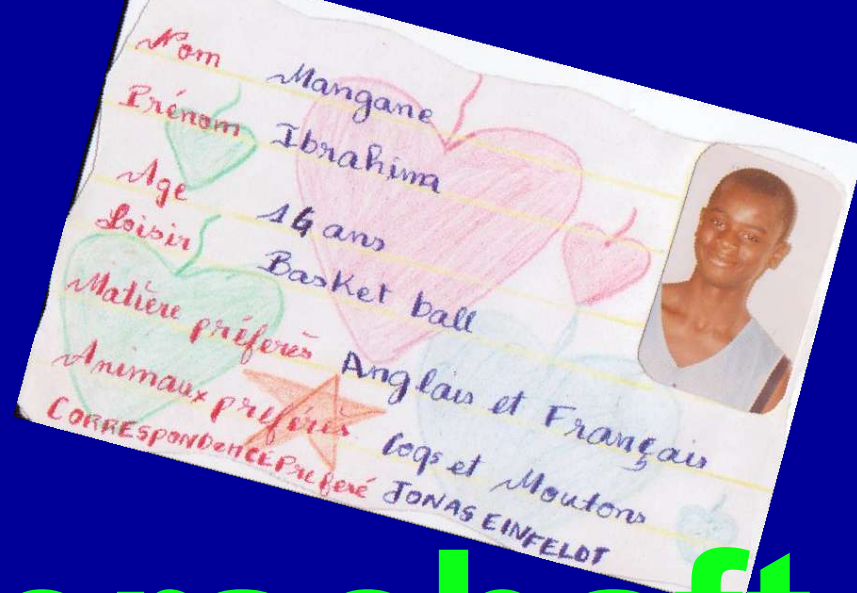 Nom Mangane
Prénom Ibrahima
Age 14 ans
Loisir Basket ball
Matière préferès Anglais et Français
Animaux préférès Coqs et Moutons
CORRESPONDENCE Preferé JONAS EINFELDT